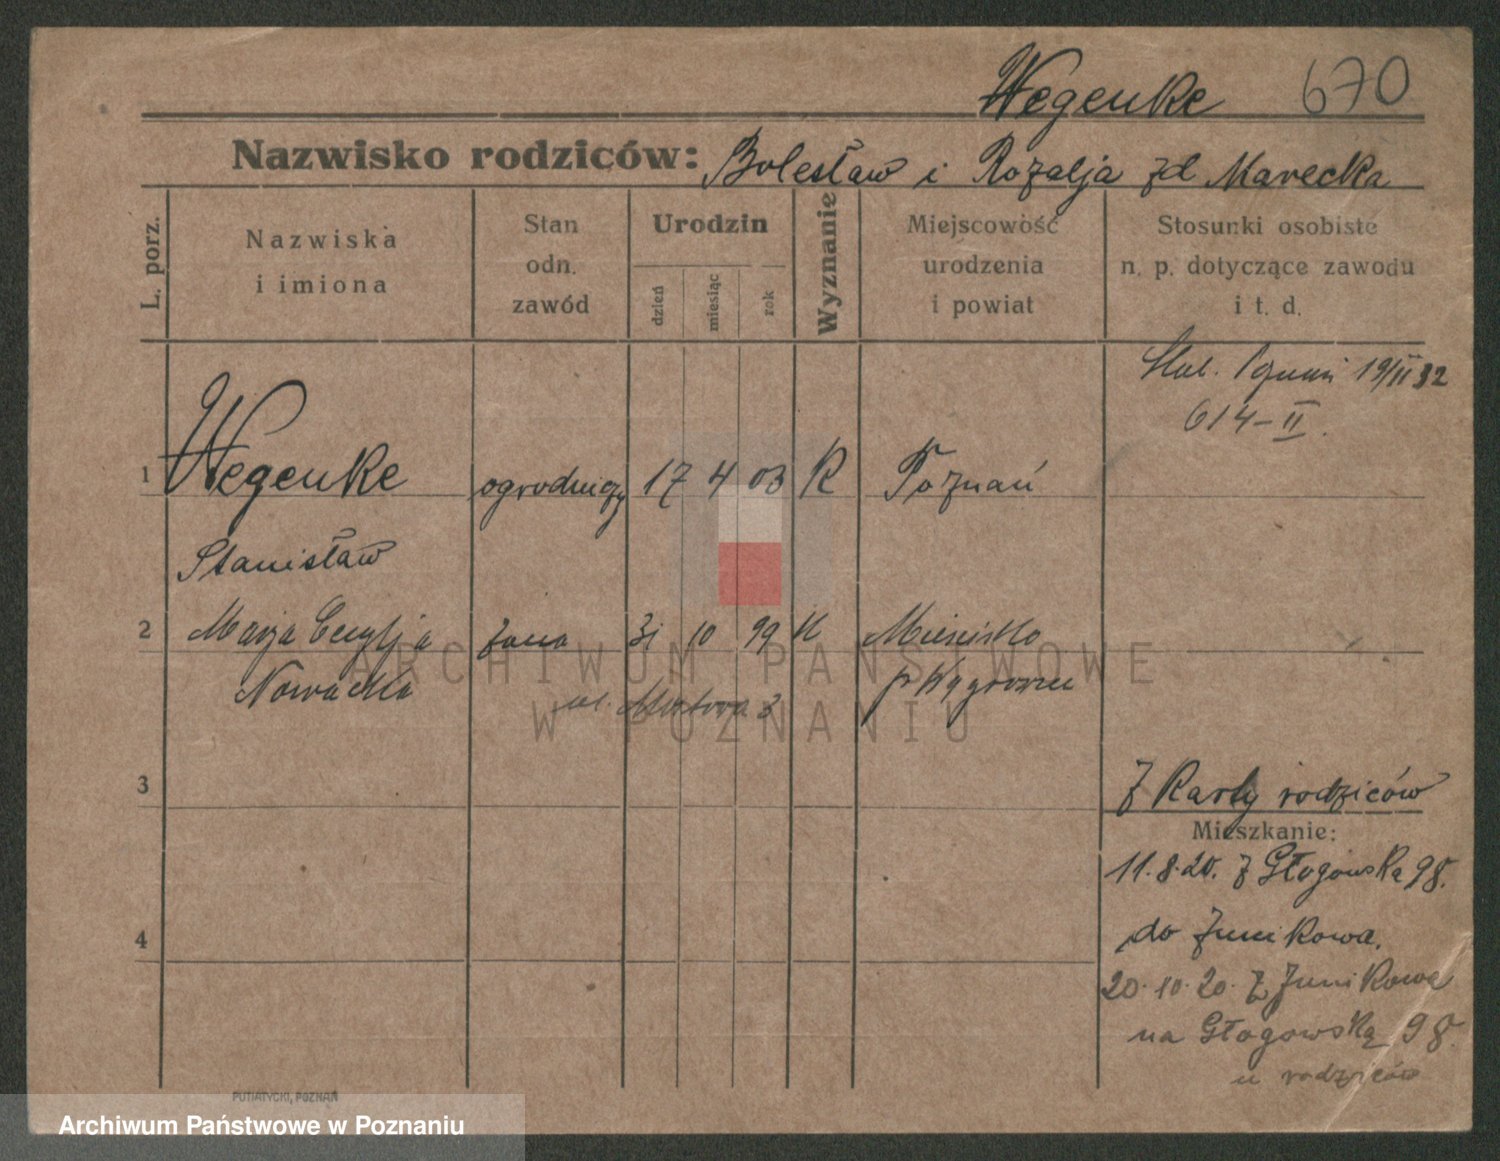 Wegenke 670
Nazwisko rodziców: Bolesław i Rozalja zd Marecka
L. porz.
Nazwiska
i imiona
Stan
odn.
zawód
Urodzin
dzień
miesiąc
rok
Wyznanie
Miejscowość
urodzenia
i powiat
Stosunki osobiste
n. p. dotyczące zawodu
i t. d.
19/II 32
614-II.
1 Wegenke ogrodniczy 17 4 03 K Poznań
Stanisław
2 Marja Cecylja żona 31 10 99 K Mieścisko
Nowacka
ul. 3
p Wągrowiec
3
Z Karty rodziców
Mieszkanie:
11.8.20. z Głogowska 98.
4
do Junikowa.
20.10.20. z Junikowa
na Głogowską 98.
u rodziców
PUTIATYCKI, POZNAŃ
ARCHIWUM PAŃSTWOWE
W POZNANIU
Archiwum Państwowe w Poznaniu